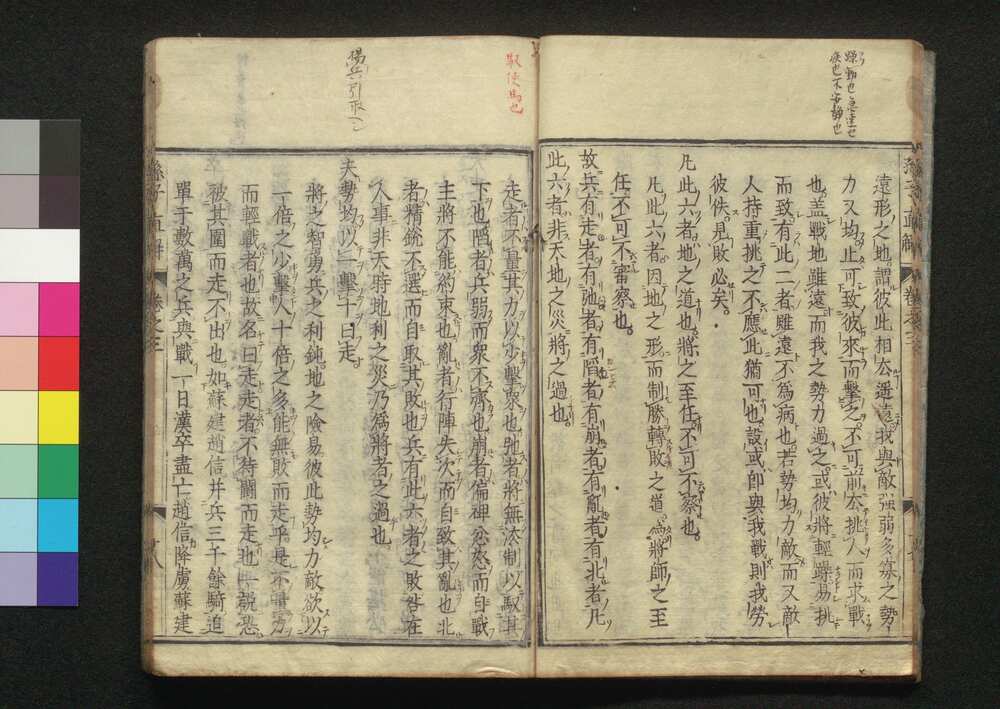 遠形之地謂彼此相公遥遠我與敵強弱多寡之勢
力又均止可致彼來而擊之不可前去挑人而求戰
也盖戰地雖遠而我之勢力過之或彼將輕躁易挑
而致有此二者雖遠不為病也若勢均力敵而又敵
人持重挑之不應此猶可也設或即與我戰則我勞
彼佚見敗必矣
凡此六者地之道也將之至任不可不察也
凡此六者因地之形而制勝轉敗之道為將師之至
任不可不審察也
故兵有走者有弛者有陷者有崩者有亂者有北者凡
此六者非天地之災將之過也
馭使馬也
走者不量其力以少擊衆也弛者將無法制以馭其
下也陷者兵弱而衆不齊也崩者偏裨忿怒而自戰
主將不能約束也亂者行陣失次而自致其亂也北
者精銳不選而自取其敗也兵有此六者之敗咎在
人事非天時地利之災乃為將者之過也
夫勢均以一擊十曰走
將之智勇兵之利鈍地之險易彼此勢均力敵欲以
一倍之少擊人十倍之多能無敗而走乎是不量力
而輕戰者也故名曰走走者不待鬪而走也一說恐
被其圍而走不出也如蘇建趙信并兵三千餘騎追
單于數萬之兵與戰一日漢卒盡亡趙信降虜蘇建
孫子直解
卷之三